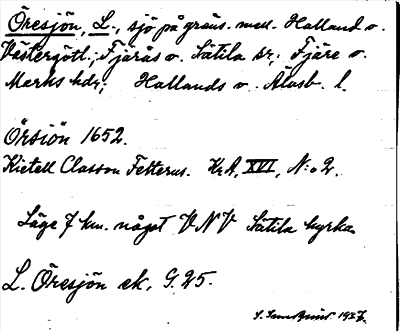 Öresjön, L., sjö på gräns. mell. Halland o.
Västergötl.; Fjärås o. Sätila sr; Fjäre o.
Marks hdr; Hallands o. Älvsb. l.
Örsiön 1652.
Kietell Classon Felterus. KrA, XVI, N:o 2.
Läge 7 km. något V N V Sätila kyrka
L. Öresjön ek, G. 25.
1937